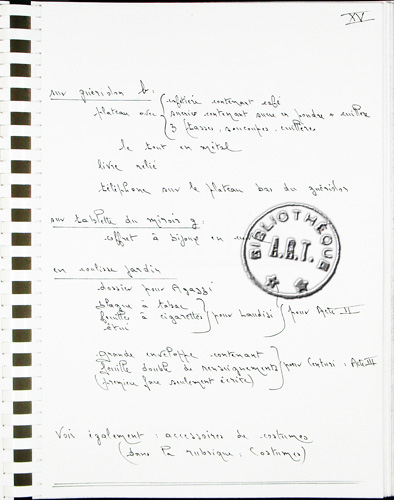 XV
sur guéridon b :
cafetière contenant café
plateau avec sucrier contenant sucre en poudre + cuillère
3 tasses, soucoupes, cuillères
le tout en métal
livre relié
téléphone sur le plateau bas du guéridon
sur tablette du miroir g :
coffret à bijoux en
BIBLIOTHÈQUE
A.R.T.
en coulisse jardin
dossier pour Agazzi
blague à tabac
feuille à cigarettes pour Laudisi pour Acte II
étui
grande enveloppe contenant
feuille double de renseignements pour Centuri : Acte III
(première face seulement écrite)
Voir également : accessoires de costumes
(dans la rubrique : Costumes)